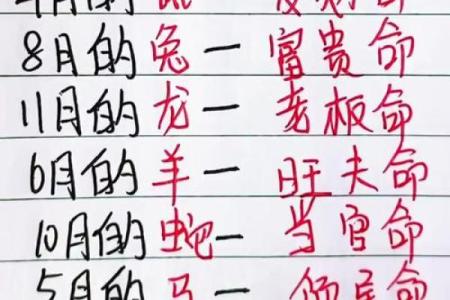 月的
8月的兔一富贵命
11月的龙一老板命
6月的羊一旺夫命
10月的蛇一当官命
5月的马一